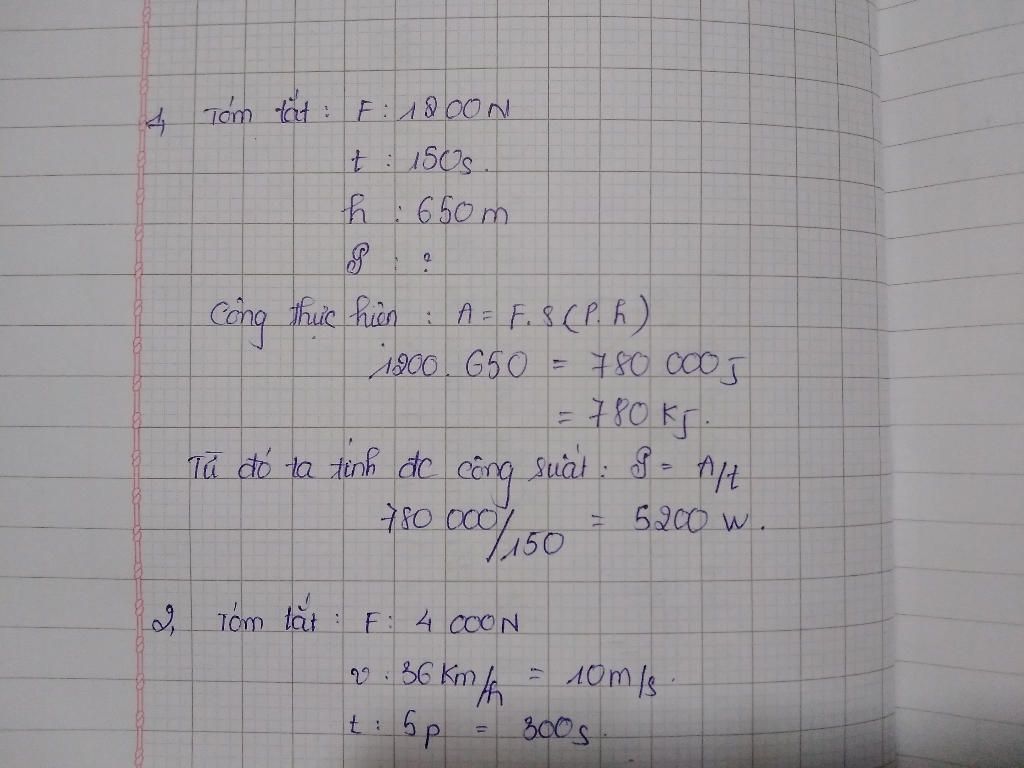 1, Tóm tắt : F : 1200N
t : 150s.
h : 650m
P : ?
Công thực hiện : A = F.s (P.h)
1200 . 650 = 780 000J
= 780 KJ.
Từ đó ta tính đc công suất : P = A/t
780 000/150 = 5200 W.
2, Tóm tắt : F : 4 000N
v : 36 Km/h = 10m/s.
t : 5p = 300s.